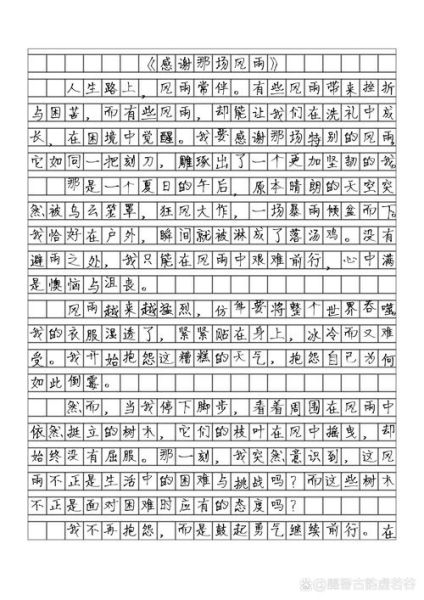 《感谢那场风雨》
人生路上，风雨常伴。有些风雨带来挫折
与困苦，而有些风雨，却能让我们在洗礼中成
长，在困境中觉醒。我要感谢那场特别的风雨，
它如同一把刻刀，雕琢出了一个更加坚韧的我。
那是一个夏日的午后，原本晴朗的天空突
然被乌云笼罩，狂风大作，一场暴雨倾盆而下。
我恰好在户外，瞬间就被淋成了落汤鸡。没有
避雨之处，我只能在风雨中艰难前行，心中满
是懊恼与沮丧。
风雨越来越猛烈，仿佛要将整个世界吞噬。
我的衣服湿透了，紧紧贴在身上，冰冷而又难
受。我开始抱怨这糟糕的天气，抱怨自己为何
如此倒霉。
然而，当我停下脚步，看着周围在风雨中
依然挺立的树木，它们的枝叶在风中摇曳，却
始终没有屈服。那一刻，我突然意识到，这风
雨不正是生活中的困难与挑战吗？而这些树木
不正是面对困难时应有的态度吗？
我不再抱怨，而是鼓起勇气继续前行。在